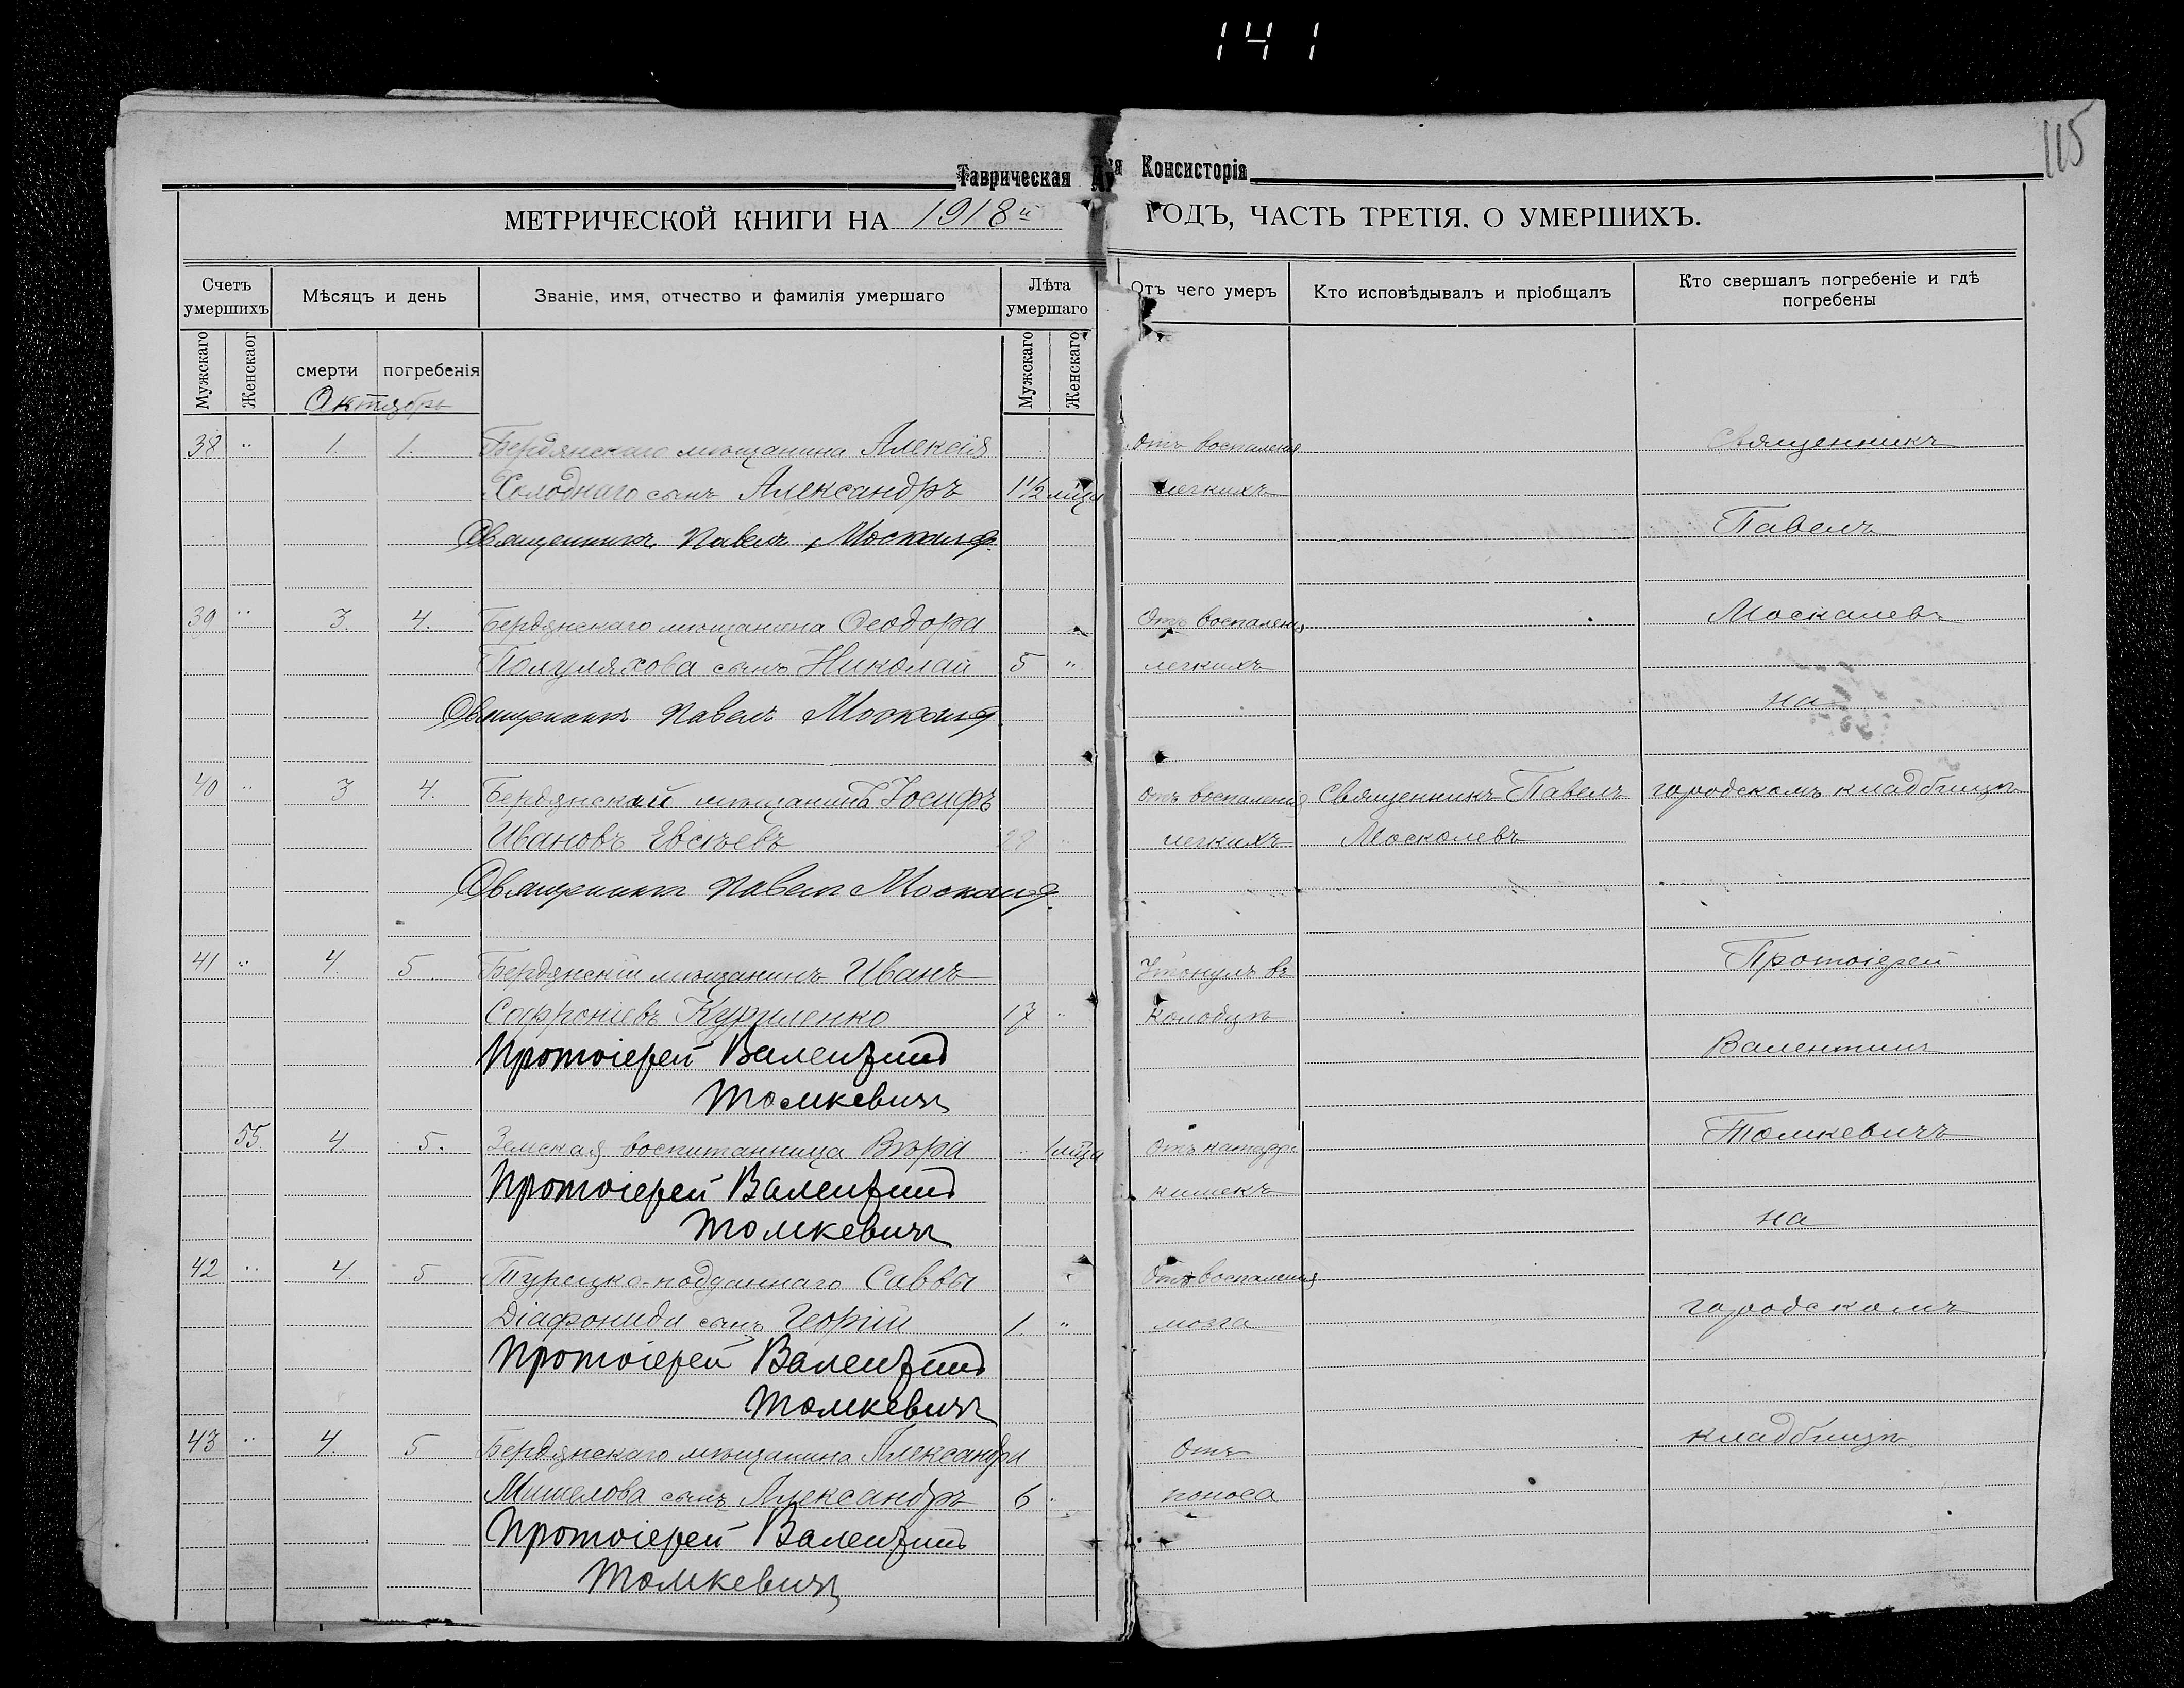 141
115
Таврическая Ду я Консисторія
МЕТРИЧЕСКОЙ КНИГИ НА 1918й ГОДЪ, ЧАСТЬ ТРЕТІЯ. О УМЕРШИХЪ.
Счетъ умершихъ
Мѣсяцъ и день
Званіе, имя, отчество и фамилія умершаго
Лѣта умершаго
Отъ чего умеръ
Кто исповѣдывалъ и пріобщалъ
Кто свершалъ погребеніе и гдѣ погребены
Мужскаго Женскаог смерти погребенія Мужскаго Женскаго
Октябрь
38 " 1. 1. Бердянскаго мѣщанина Алексія Отъ воспаленія Священникъ
Холоднаго сынъ Александръ 1½ мѣца легкихъ
Священникъ Павелъ Москалев Павелъ
39 " 3. 4. Бердянскаго мѣщанина Ѳеодора Отъ воспаленія Москалевъ
Полуляхова сынъ Николай 5 " легкихъ
Священникъ Павелъ Москалев на
40 " 3 4. Бердянскай мѣщанинъ Іосифъ Отъ воспаленія Священникъ Павелъ городскомъ кладбищѣ
Ивановъ Евсѣевъ 28 " легкихъ Москолевъ
Священникъ Павелъ Москалев
41 " 4. 5 Бердянскій мѣщанинъ Иванъ Утонулъ въ Протоіерей
Софроніевъ Куриленко 17 " колодцѣ
Протоіерей Валентинъ Валентинъ
Томкевичъ
55. 4. 5. Земская воспитанница Вѣра " 1 мѣца Отъ катарра Томкевичъ
Протоіерей Валентинъ кишекъ
Томкевичъ на
42 " 4. 5 Турецко-подданнаго Саввы Отъ воспаленія
Діафониди сынъ Георгій 1. " мозга городскомъ
Протоіерей Валентинъ
Томкевичъ
43 " 4 5 Бердянскаго мѣщанина Александра Отъ кладбищѣ
Мишелова сынъ Александръ 6 " поноса
Протоіерей Валентинъ
Томкевичъ